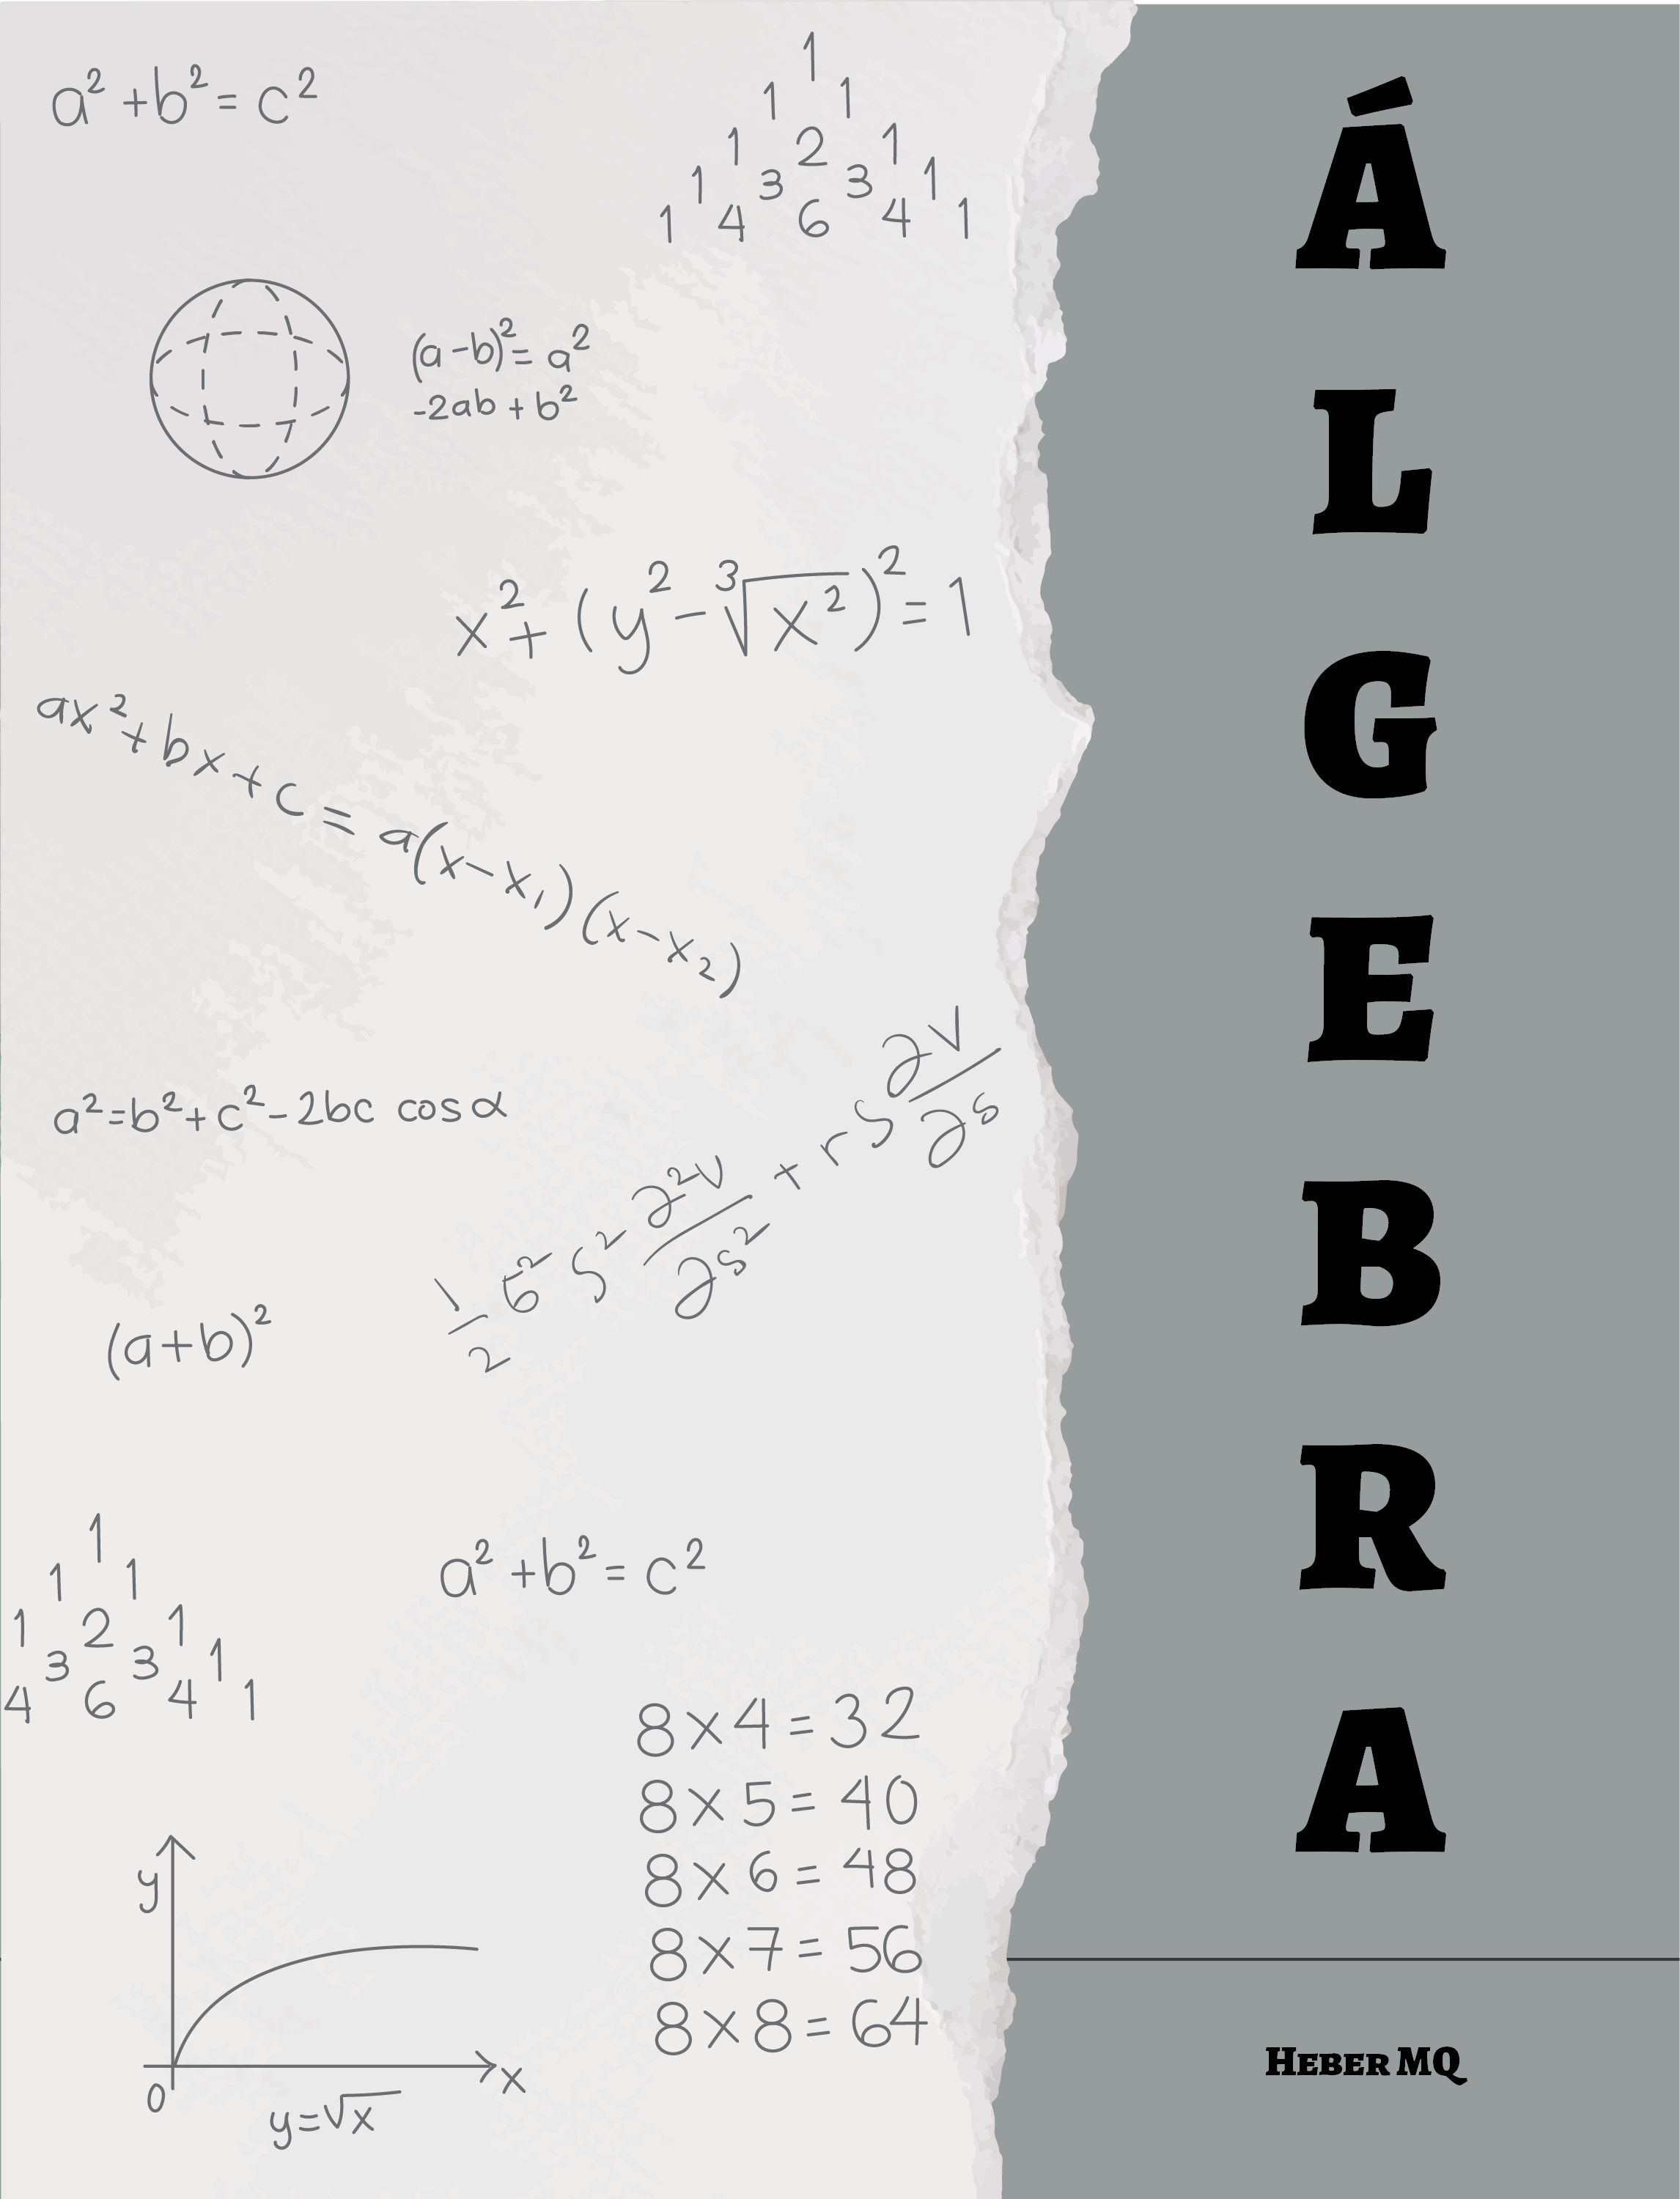 a² + b² = c²
1
1 1
1 2 1
1 3 3 1
1 4 6 4 1
(a - b)² = a²
-2ab + b²
x² + (y² - ∛x²)² = 1
ax² + bx + c = a(x - x₁)(x - x₂)
a² = b² + c² - 2bc cos α
1/2 6² S² ∂²V/∂s² + rS ∂V/∂s
(a + b)²
1
1 1
1 2 1
3 3 1
4 6 4 1
a² + b² = c²
8 × 4 = 32
8 × 5 = 40
8 × 6 = 48
8 × 7 = 56
8 × 8 = 64
y
0
x
y = √x
Á
L
G
E
B
R
A
HEBER MQ